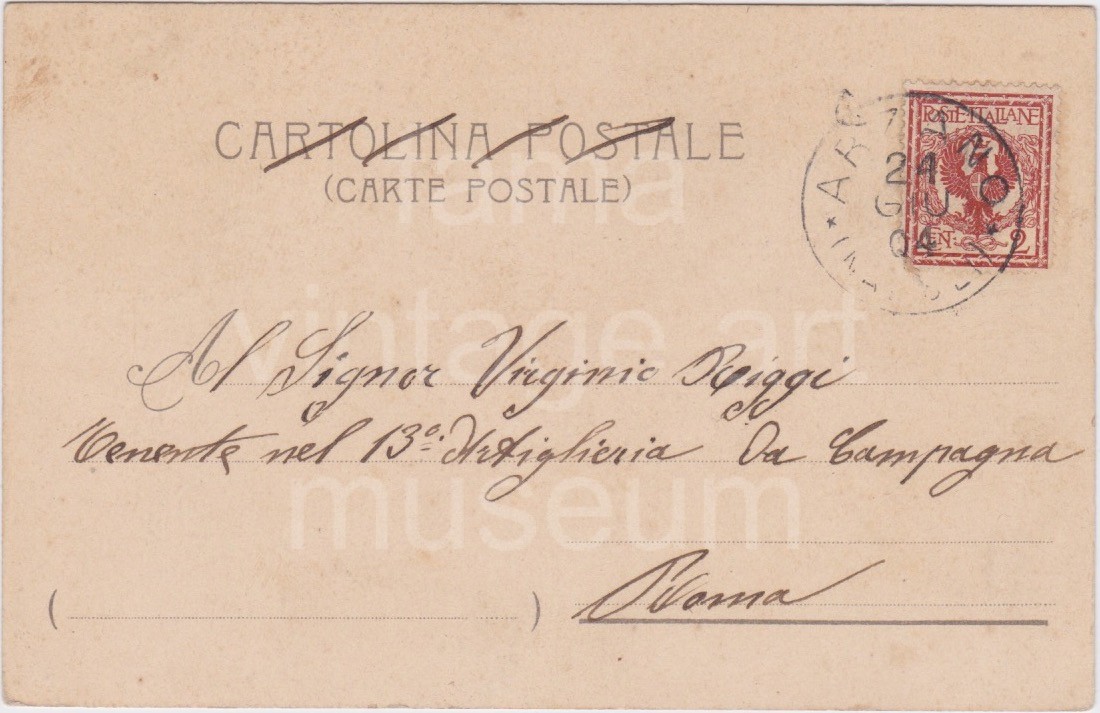 CARTOLINA POSTALE
(CARTE POSTALE)
POSTE ITALIANE
CEN: 2
24
GIU
04
Al Signor Virginio Reiggi
Tenente nel 13º Artiglieria da Campagna
Roma
fama
vintage art
museum